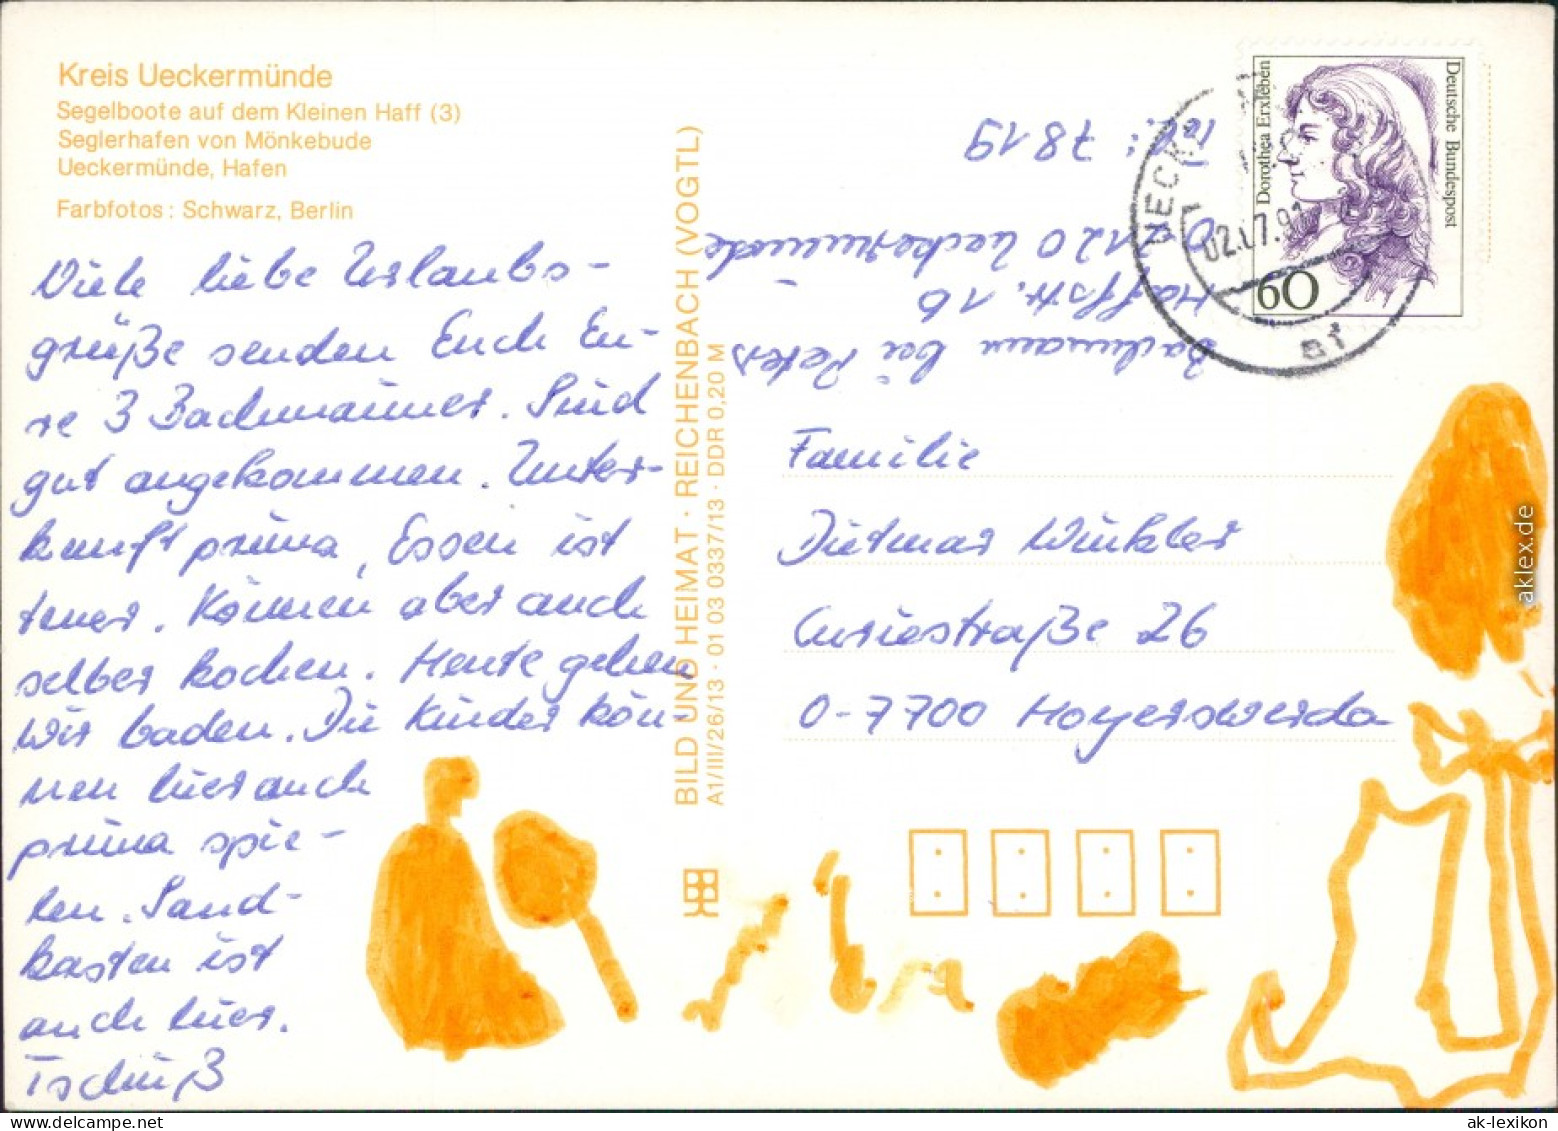 Kreis Ueckermünde
Segelboote auf dem Kleinen Haff (3)
Seglerhafen von Mönkebude
Ueckermünde, Hafen
Farbfotos: Schwarz, Berlin
Viele liebe Urlaubs-
grüße senden Euch Eu-
re 3 Bachmänner. Sind
gut angekommen. Unter-
kunft prima, Essen ist
teuer. Können aber auch
selber kochen. Heute gehen
wir baden. Die Kinder kön-
nen hier auch
prima spie-
len. Sand-
kasten ist
auch hier.
Tschüß
BILD UND HEIMAT · REICHENBACH (VOGTL)
A1/III/26/13 · 01 03 0337/13 · DDR 0,20 M
Bachmann bei Peters
Haffstr. 16
2120 Ueckermünde
Tel.: 7819
Deutsche Bundespost
Dorothea Erxleben
60
UECK
02.07.91
a1
Familie
Dietmar Winkler
Curiestraße 26
O-7700 Hoyerswerda
aklex.de
ak-lexikon